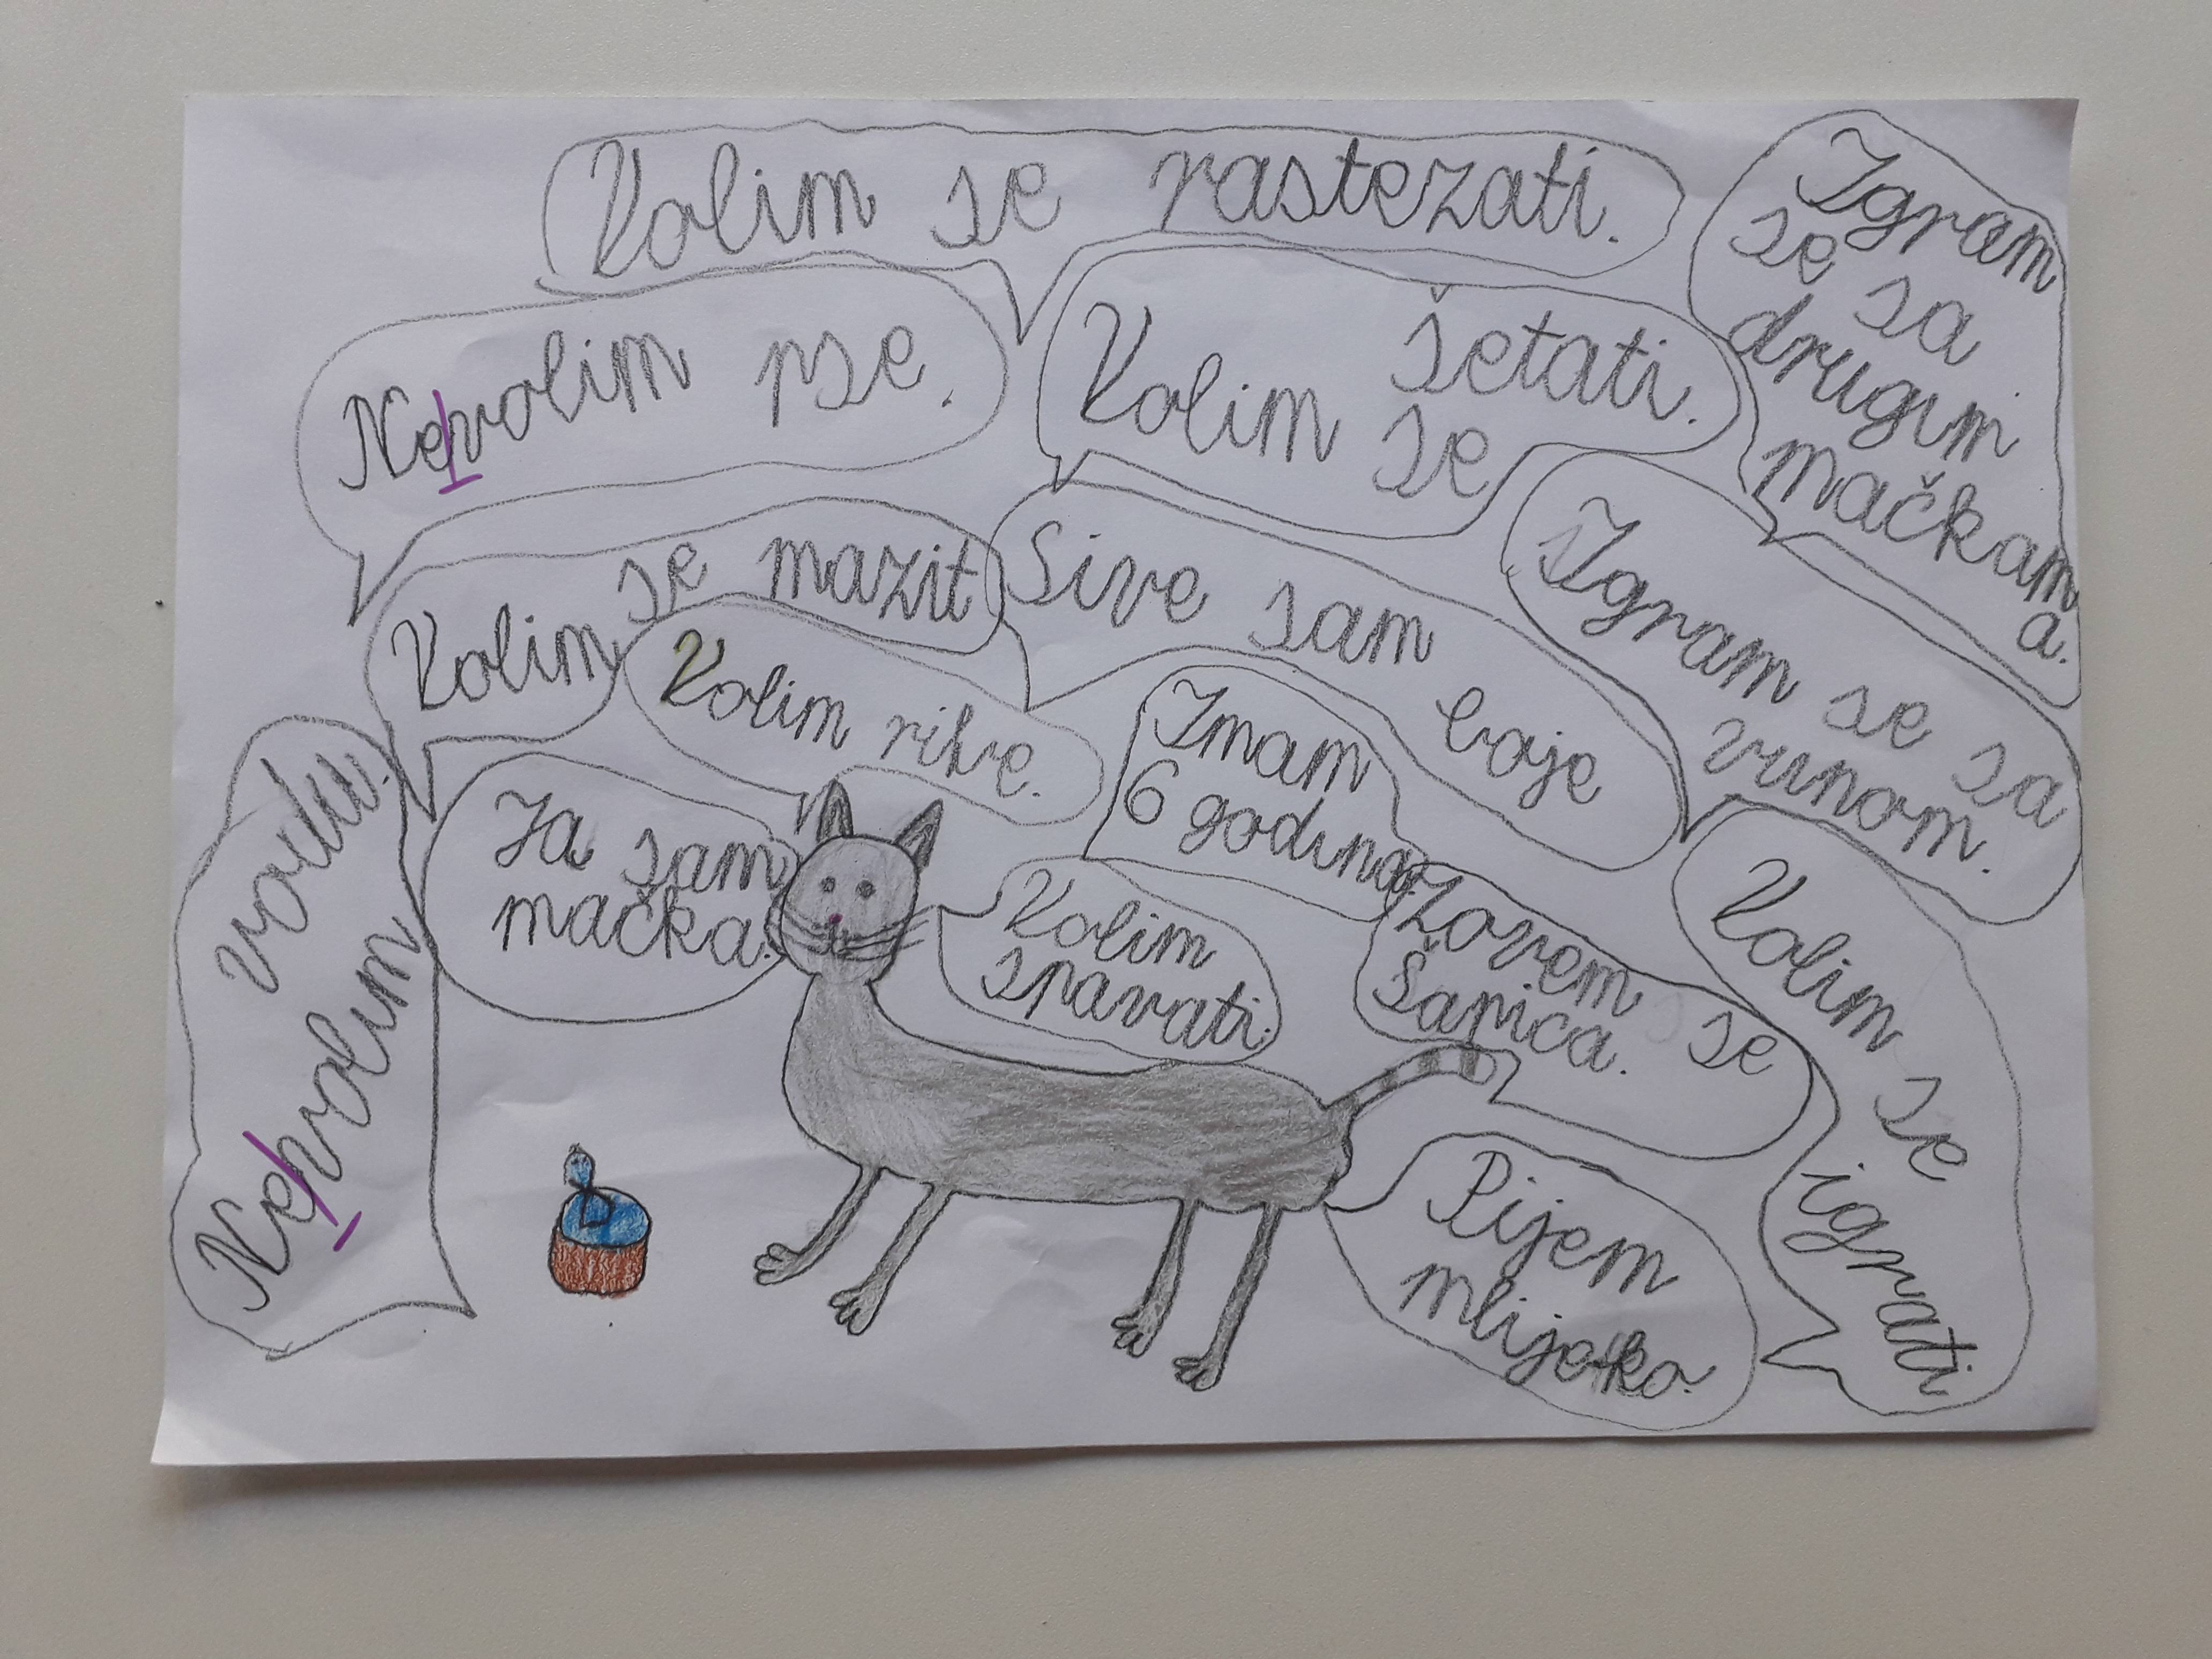 Volim se rastezati.
Igram
se sa
drugim
mačkam
a.
Nevolim pse.
Volim se
šetati.
Volim se mazit
Sive sam
boje
Igram se sa
vunom.
Volim ribe.
Imam
6 godina.
Nevolim
vodu.
Ja sam
mačka.
Volim
spavati.
Zovem se
Šapica.
Volim se
igrati
Pijem
mlijeko.